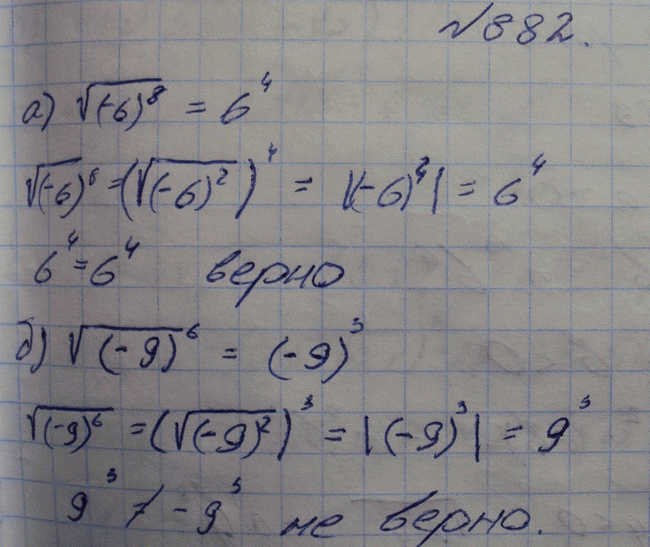 №882.
а) √(-6)⁸ = 6⁴
√(-6)⁶ = (√(-6)²)⁴ = |(-6)⁴| = 6⁴
6⁴ = 6⁴ верно
б) √(-9)⁶ = (-9)³
√(-9)⁶ = (√(-9)²)³ = |(-9)³| = 9³
9³ ≠ -9³ не верно.